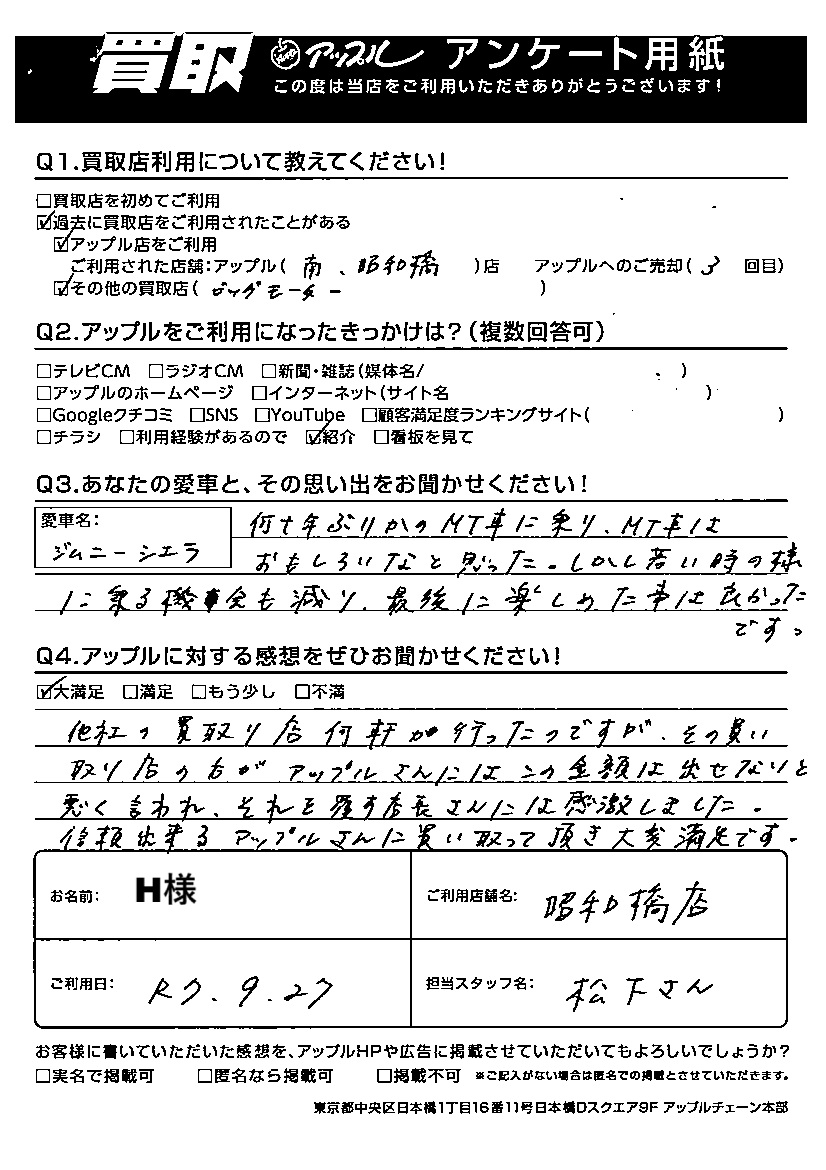 買取 アップル アンケート用紙
この度は当店をご利用いただきありがとうございます!
Q1.買取店利用について教えてください!
□買取店を初めてご利用
☑過去に買取店をご利用されたことがある
☑アップル店をご利用
ご利用された店舗:アップル( 南、昭和橋 )店 アップルへのご売却( 3 回目)
☑その他の買取店( ビッグモーター )
Q2.アップルをご利用になったきっかけは?(複数回答可)
□テレビCM □ラジオCM □新聞・雑誌(媒体名/ )
□アップルのホームページ □インターネット(サイト名 )
□Googleクチコミ □SNS □YouTube □顧客満足度ランキングサイト( )
□チラシ □利用経験があるので ☑紹介 □看板を見て
Q3.あなたの愛車と、その思い出をお聞かせください!
愛車名: ジムニーシエラ
何十年ぶりかのMT車に乗り、MT車は
おもしろいなと思った。しかし若い時の様
に乗る機会も減り、最後に楽しめた事は良かった
です。
Q4.アップルに対する感想をぜひお聞かせください!
☑大満足 □満足 □もう少し □不満
他社の買取り店何軒か行ったのですが、その買い
取り店の方がアップルさんにはこの金額は出せないと
悪く言われ、それを覆す店長さんには感激しました。
信頼出来るアップルさんに買い取って頂き大変満足です。
お名前: H様
ご利用店舗名: 昭和橋店
ご利用日: R7.9.27
担当スタッフ名: 松下さん
お客様に書いていただいた感想を、アップルHPや広告に掲載させていただいてもよろしいでしょうか?
□実名で掲載可 □匿名なら掲載可 □掲載不可 ※ご記入がない場合は匿名での掲載とさせていただきます。
東京都中央区日本橋1丁目16番11号日本橋Dスクエア9F アップルチェーン本部